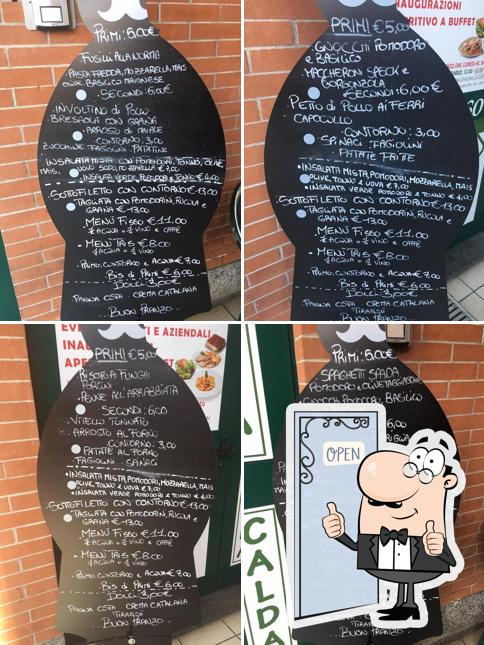 PRIMI: 5,00€
FUSILLI ALLA NORMA
PASTA FREDDA, MOZZARELLA, MAIS
OLIVE, BASILICO MAIONESE
SECONDI: 6,00€
INVOLTINO DI POLLO
BRESAOLA CON GRANA
ARROSTO DI MAIALE
CONTORNI: 3,00
ZUCCHINE FAGIOLINI PATATINE
INSALATA MISTA CON POMODORI, TONNO, OLIVE
MAIS, UOVO SODO, MOZZARELLA € 7,00
INSALATA VERDE, POMODORI E TONNO € 4,00
SOTTOFILETTO CON CONTORNO €13,00
TAGLIATA CON POMODORINI, RUCOLA E
GRANA €13,00
MENÙ FISSO €11.00
½ ACQUA o ¼ VINO e CAFFÈ
MENÙ TRIS €8.00
½ ACQUA o ¼ VINO
PRIMO, CONTORNO e ACQUA €7,00
BIS di PRIMI €6,00
DOLCI: 3,00€
PANNA COTTA CREMA CATALANA
...BUON PRANZO...
INAUGURAZIONI
APERITIVO A BUFFET
PRIMI €5,00
GNOCCHI POMODORO
e BASILICO
MACCHERONI SPECK e
GORGONZOLA
SECONDI: 6,00€
PETTO di POLLO AI FERRI
CAPOCOLLO
CONTORNI: 3,00
SPINACI FAGIOLINI
PATATE FRITTE
INSALATA MISTA, POMODORI, MOZZARELLA, MAIS
OLIVE, TONNO E UOVA €7,00
INSALATA VERDE POMODORI e TONNO € 4,00
SOTTOFILETTO CON CONTORNO €13,00
TAGLIATA CON POMODORINI, RUCOLA e
GRANA €13,00
MENÙ FISSO €11.00
½ ACQUA o ¼ VINO e CAFFÈ
MENÙ TRIS €8.00
½ ACQUA o ¼ VINO
PRIMO, CONTORNO e ACQUA €7,00
BIS di PRIMI €6,00
DOLCI: 3,00€
PANNA COTTA CREMA CATALANA
TIRAMISÙ
BUON PRANZO...
PRIMI €5,00
RISOTTO AI FUNGHI
PORCINI
PENNE ALL'ARRABBIATA
SECONDI: 6,00
VITELLO TONNATO
ARROSTO AL FORNO
CONTORNI: 3,00
PATATE AL FORNO
FAGIOLINI SPINACI
INSALATA MISTA, POMODORI, MOZZARELLA, MAIS
OLIVE, TONNO E UOVA € 7,00
INSALATA VERDE POMODORI e TONNO € 4,00
SOTTOFILETTO CON CONTORNO €13,00
TAGLIATA CON POMODORINI, RUCOLA e
GRANA €13,00
MENÙ FISSO €11.00
½ ACQUA o ¼ VINO e CAFFÈ
MENÙ TRIS €8.00
½ ACQUA o ¼ VINO
PRIMO, CONTORNO e ACQUA €7,00
BIS di PRIMI €6,00
DOLCI: 3,00€
PANNA COTTA CREMA CATALANA
TIRAMISÙ
BUON PRANZO...
PRIMI: 5,00€
SPAGHETTI SPADA
POMODORO e OLIVE TAGGIASCHE
GNOCCHI POMODORO, BASILICO
OPEN
CALDA
TIRAMISÙ
...BUON PRANZO...